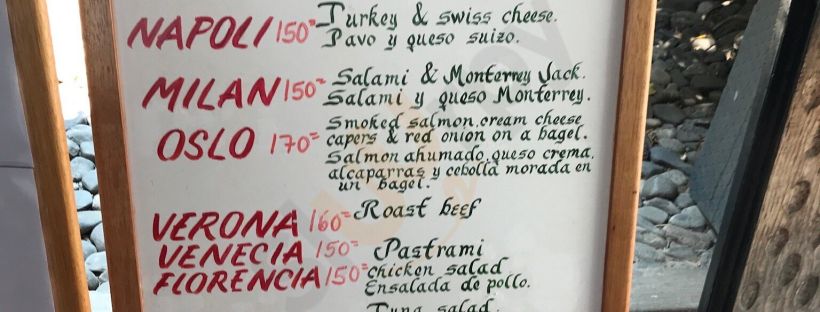 NAPOLI 150= Turkey & swiss cheese.
Pavo y queso suizo.
MILAN 150= Salami & Monterrey Jack.
Salami y queso Monterrey.
Smoked salmon, cream cheese
OSLO 170= capers & red onion on a bagel.
Salmon ahumado, queso crema,
alcaparras y cebolla morada en
un bagel.
VERONA 160= Roast beef
VENECIA 150= Pastrami
FLORENCIA 150= chicken salad
Ensalada de pollo.
Tuna salad.